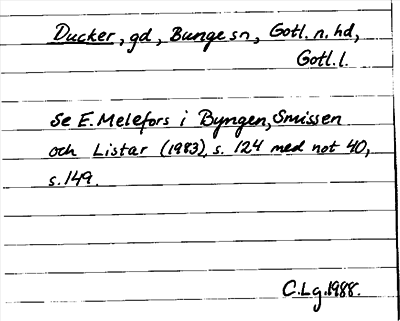 Ducker, gd, Bunge sn, Gotl. n. hd,
Gotl. l.
Se E. Melefors i Byngen, Smissen
och Listar (1983), s. 124 med not 40,
s. 149.
C. Lg. 1988.